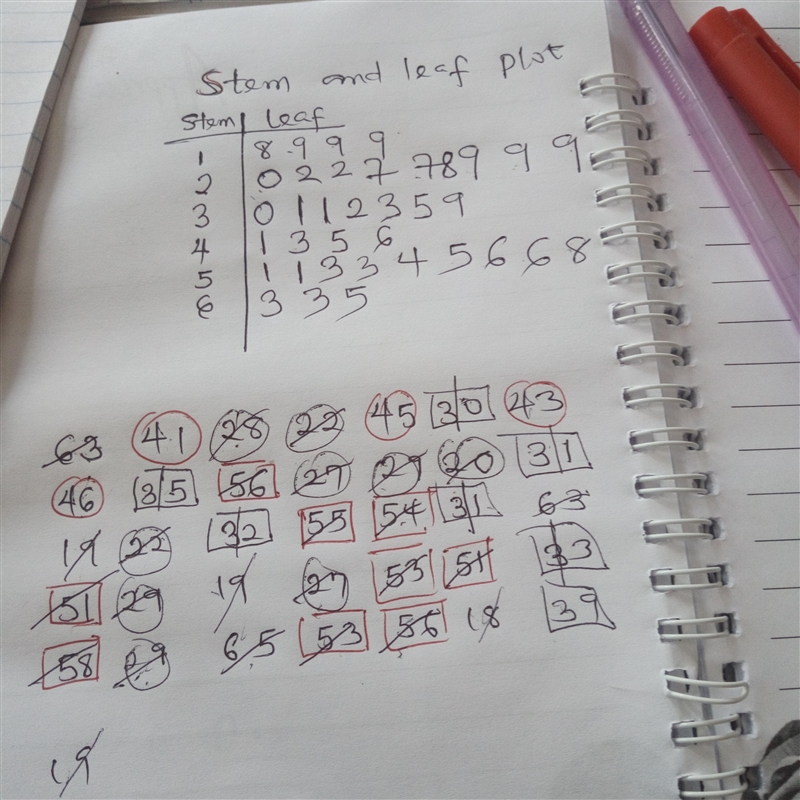 Stem and leaf plot
Stem leaf
1 8 9 9 9
2 0 2 2 7 7 8 9 9 9
3 0 1 1 2 3 5 9
4 1 3 5 6
5 1 1 3 3 4 5 6 6 8
6 3 3 5
63 41 28 22 45 30 43
46 35 56 27 29 20 31
19 22 32 55 54 31 63
51 29 19 27 53 51 33
58 29 65 53 56 18 39
19